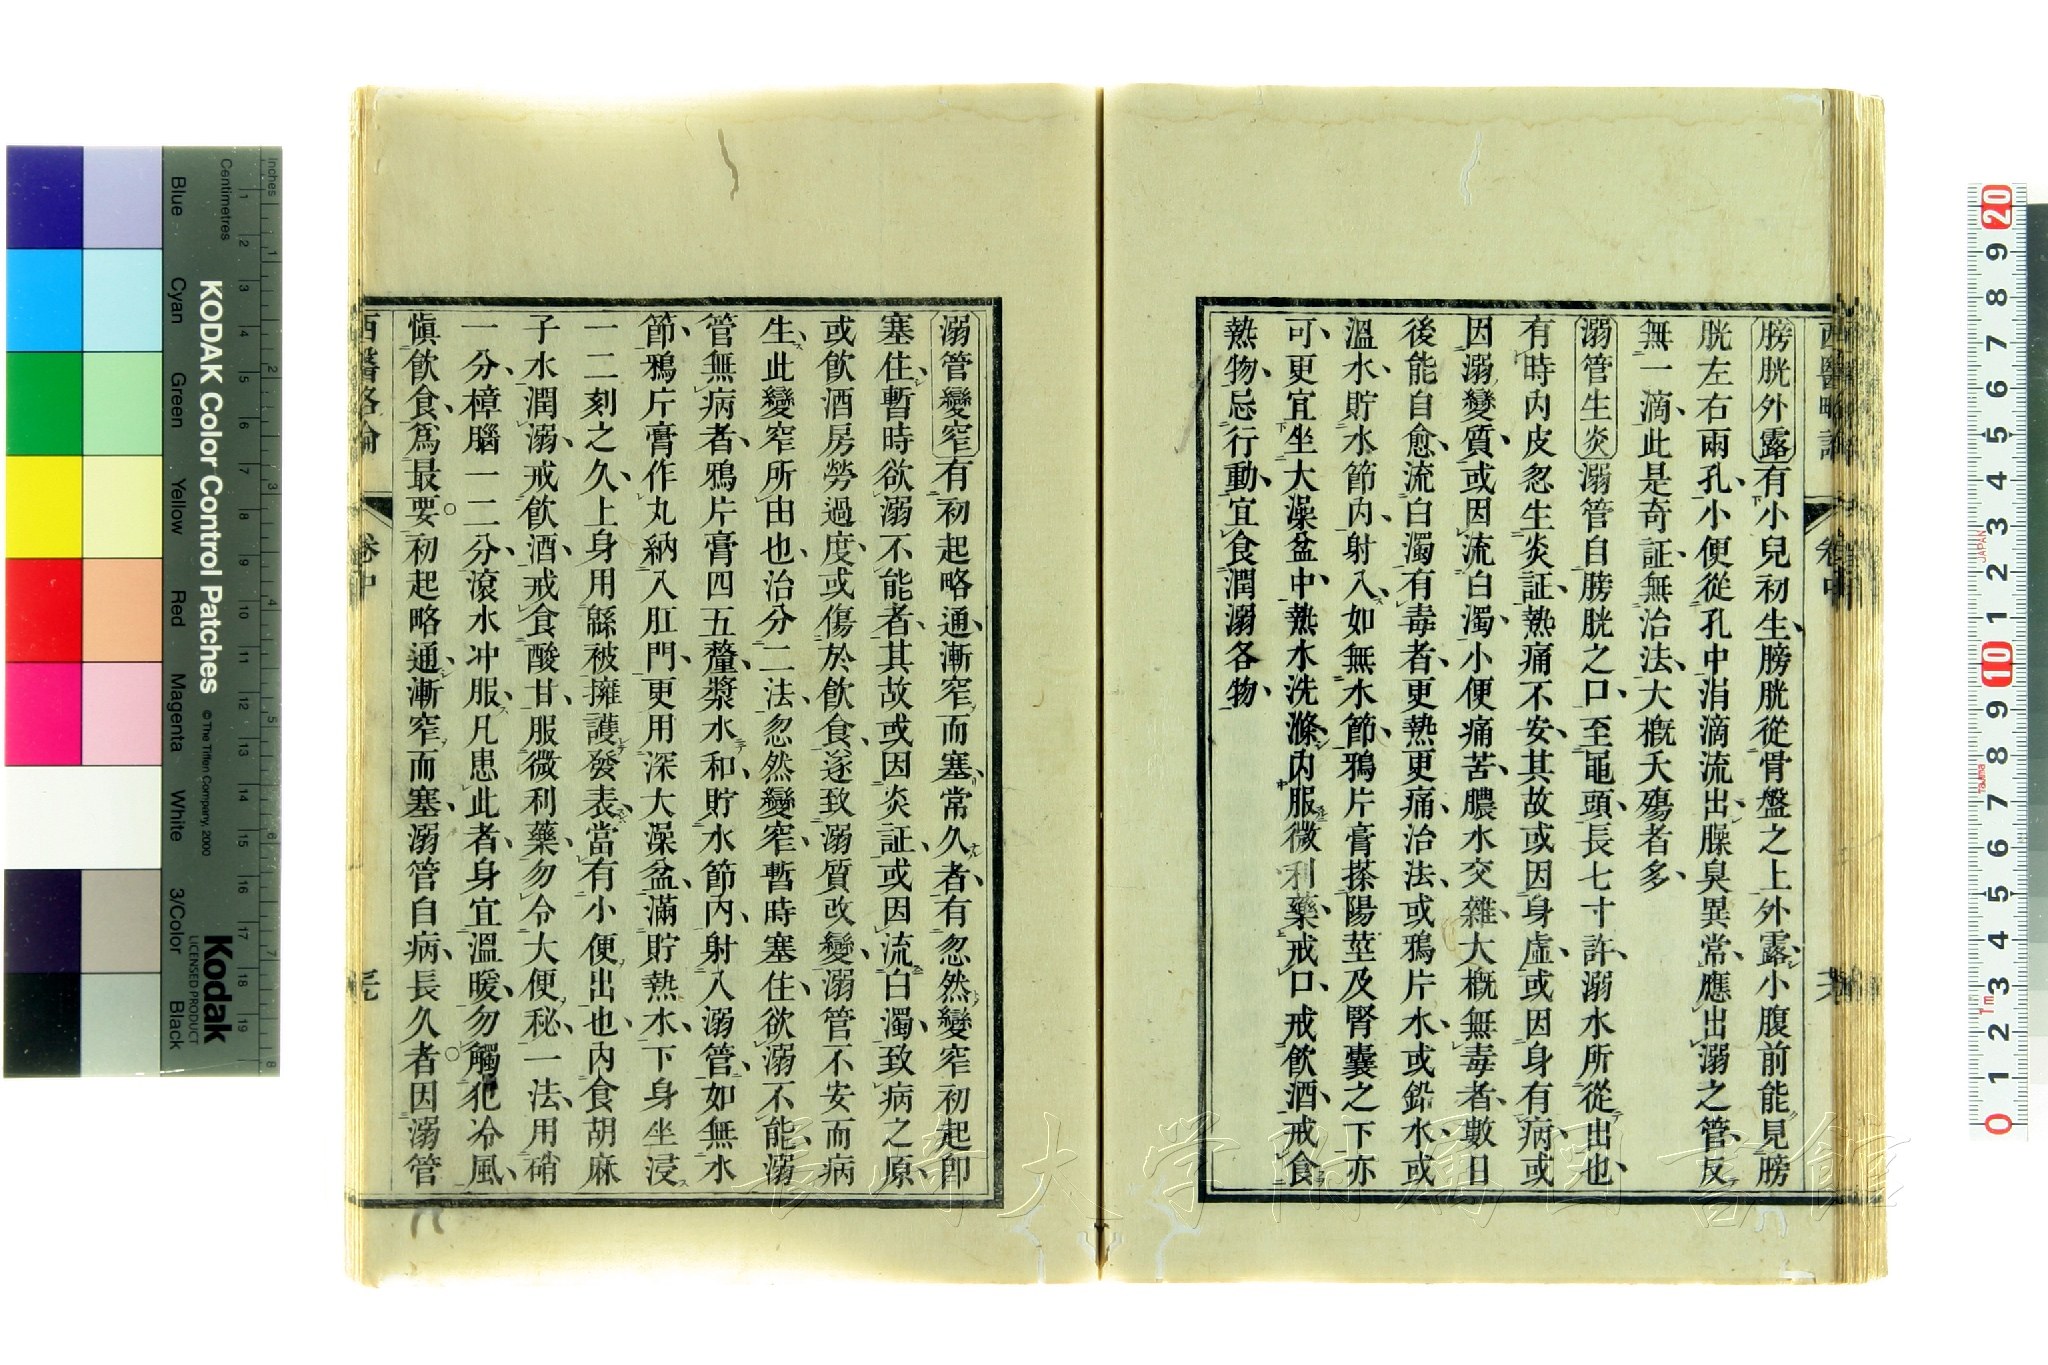 西醫略論
卷中
膀胱外露有小兒初生膀胱從骨盤之上外露小腹前能見膀
胱左右兩孔小便從孔中涓滴流出臊臭異常應出溺之管反
無一滴此是奇証無治法大概夭殤者多
溺管生炎溺管自膀胱之口至龜頭長七寸許溺水所從出也
有時內皮忽生炎証熱痛不安其故或因身虛或因身有病或
因溺變質或因流白濁小便痛苦膿水交雜大概無毒者數日
後能自愈流白濁有毒者更熱更痛治法或鴉片水或鉛水或
溫水貯水節內射入如無水節鴉片膏搽陽莖及腎囊之下亦
可更宜坐大澡盆中熱水洗滌內服微利藥戒口戒飲酒戒食
熱物忌行動宜食潤溺各物
溺管變窄有初起略通漸窄而塞常久者有忽然變窄初起卽
塞住暫時欲溺不能者其故或因炎証或因流白濁致病之原
或飲酒房勞過度或傷於飲食遂致溺質改變溺管不安而病
生此變窄所由也治分二法忽然變窄暫時塞住欲溺不能溺
管無病者鴉片膏四五釐漿水和貯水節內射入溺管如無水
節鴉片膏作丸納入肛門更用深大澡盆滿貯熱水下身坐浸
一二刻之久上身用緜被擁護發表當有小便出也內食胡麻
子水潤溺戒飲酒戒食酸甘服微利藥勿令大便秘一法用硝
一分樟腦一二分滾水冲服凡患此者身宜溫暖勿觸犯冷風
愼飲食爲最要初起略通漸窄而塞溺管自病長久者因溺管
西醫略論
卷中
Inches
Centimetres
KODAK Color Control Patches
© The Tiffen Company, 2000
Blue
Cyan
Green
Yellow
Red
Magenta
White
3/Color
Black
Kodak
LICENSED PRODUCT
JAPAN
Tajima
長崎大学附属図書館